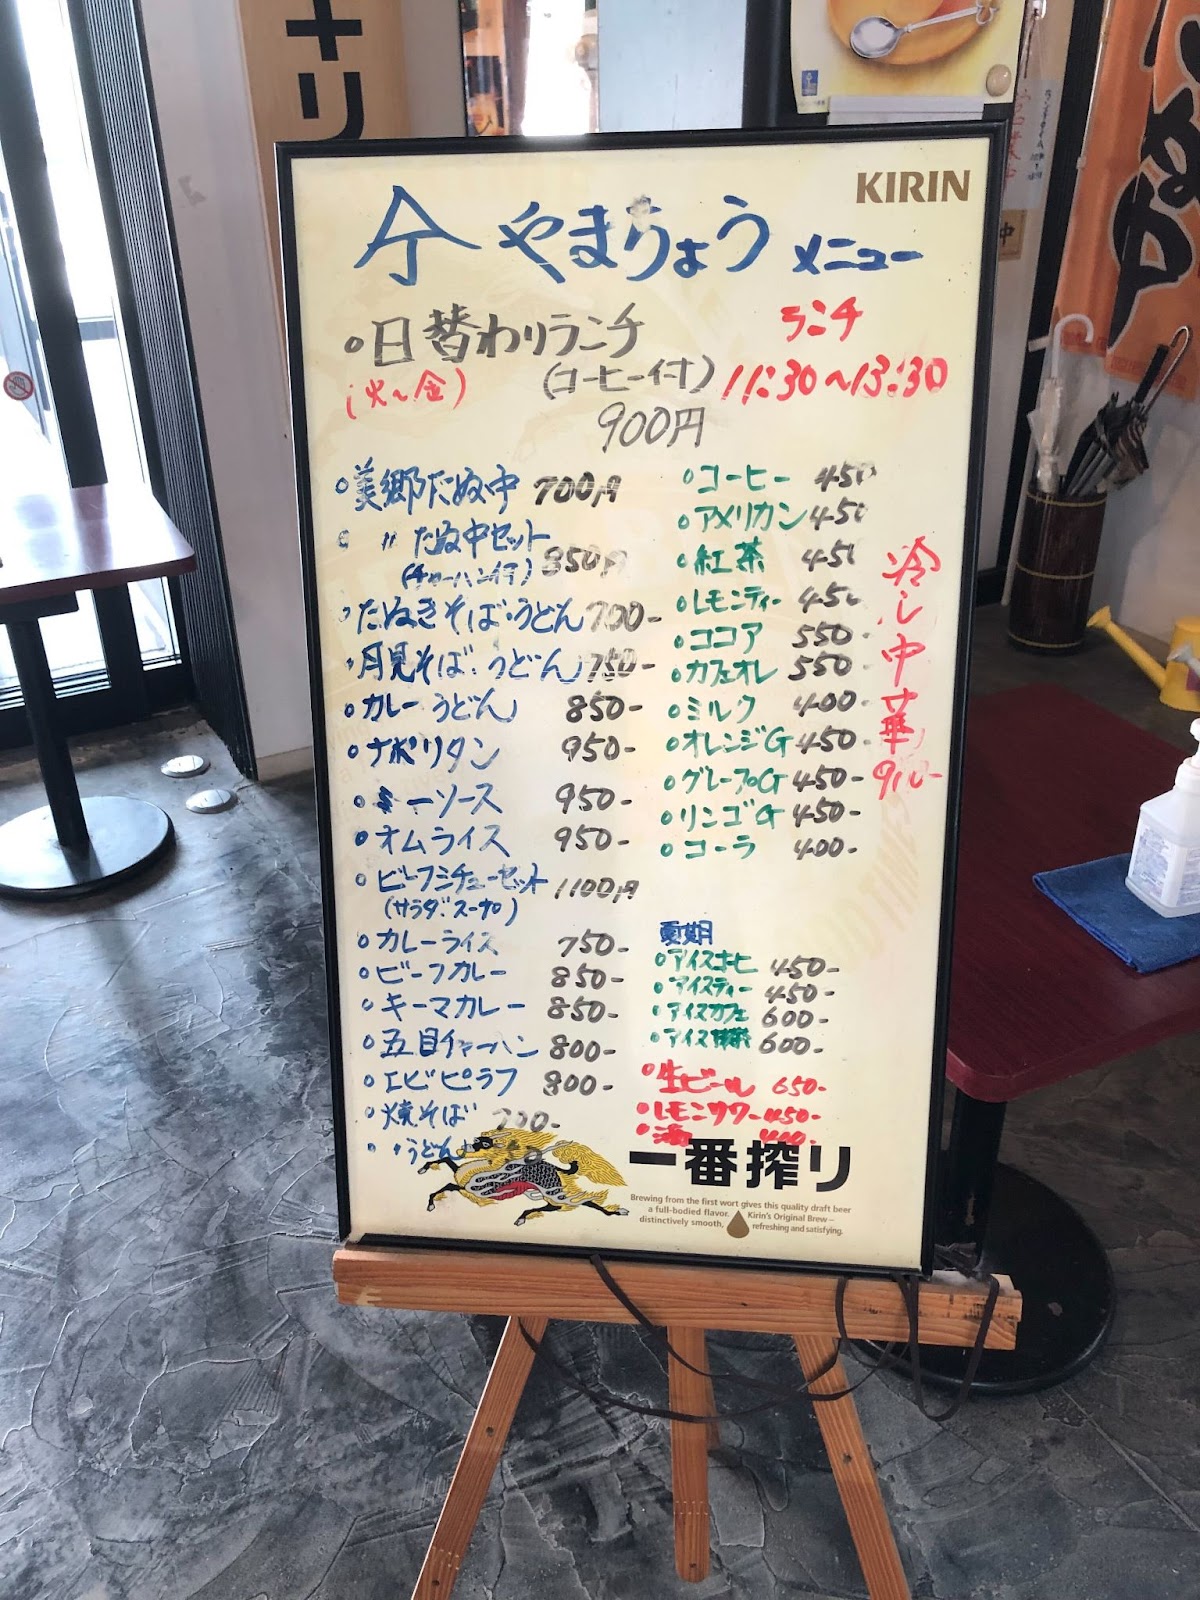 キリ
KIRIN
やまりょう メニュー
○日替わりランチ
ランチ
(火〜金)
(コーヒー付)
11:30〜13:30
900円
○美郷たぬ中 700円
〃 たぬ中セット
(チャーハン付) 850円
○たぬきそば・うどん 700-
○月見そば・うどん 750-
○カレーうどん 850-
○ナポリタン 950-
ミートソース 950-
○オムライス 950-
○ビーフシチューセット 1100円
(サラダ・スープ)
○カレーライス 750-
○ビーフカレー 850-
○キーマカレー 850-
○五目チャーハン 800-
○エビピラフ 800-
○焼そば
○ 〃 うどん
○コーヒー 450
○アメリカン 450
○紅茶 450
○レモンティー 450
○ココア 550-
○カフェオレ 550-
○ミルク 400-
○オレンジG 450-
○グレープG 450-
○リンゴG 450-
○コーラ 400-
冷し中華
夏期
○アイスコーヒー 450-
○アイスティー 450-
○アイスカフェ 600-
○アイス 600-
○生ビール 650-
○レモンサワー 450-
一番搾り
Brewing from the first wort gives this quality draft beer
a full-bodied flavor. Kirin's Original Brew—
distinctively smooth, refreshing and satisfying.